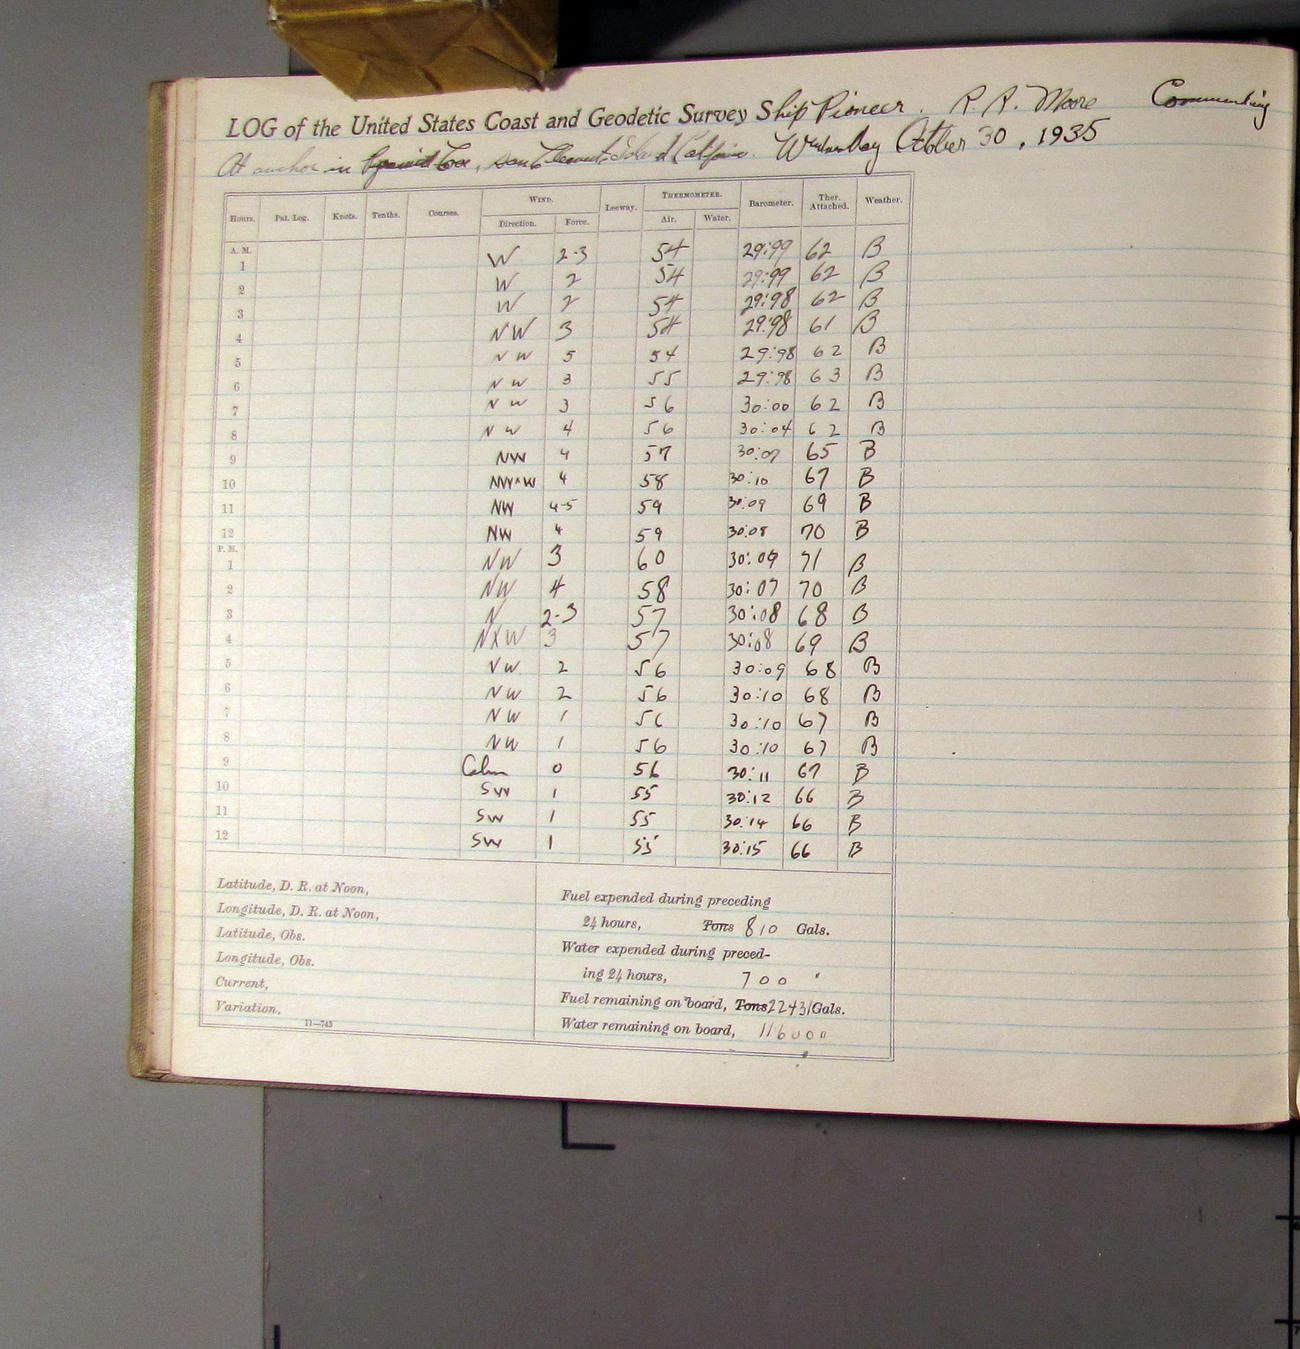 LOG of the United States Coast and Geodetic Survey Ship Pioneer. R. R. Moore Commanding
At anchor in San Clemente Island California. Wednesday October 30, 1935
Hours. Pat. Log. Knots. Tenths. Courses. WIND. Direction. Force. Leeway. THERMOMETER. Air. Water. Barometer. Ther. Attached. Weather.
A. M.
1 W 2-3 54 29:99 62 B
2 W 2 54 29:99 62 B
3 W 2 54 29:98 62 B
4 NW 3 54 29:98 61 B
5 NW 5 54 29:98 62 B
6 NW 3 55 29:98 63 B
7 NW 3 56 30:00 62 B
8 NW 4 56 30:04 62 B
9 NW 4 57 30:07 65 B
10 NWxW 4 58 30:10 67 B
11 NW 4-5 59 30:09 69 B
12 NW 4 59 30:08 70 B
P. M.
1 NW 3 60 30:09 71 B
2 NW 4 58 30:07 70 B
3 N 2-3 57 30:08 68 B
4 NXW 3 57 30:08 69 B
5 NW 2 56 30:09 68 B
6 NW 2 56 30:10 68 B
7 NW 1 56 30:10 67 B
8 NW 1 56 30:10 67 B
9 Calm 0 56 30:11 67 B
10 SW 1 55 30:12 66 B
11 SW 1 55 30:14 66 B
12 SW 1 55 30:15 66 B
Latitude, D. R. at Noon,
Longitude, D. R. at Noon,
Latitude, Obs.
Longitude, Obs.
Current,
Variation,
11—743
Fuel expended during preceding
24 hours, Tons 810 Gals.
Water expended during preced-
ing 24 hours, 700 "
Fuel remaining on board, Tons 22431 Gals.
Water remaining on board, 116000